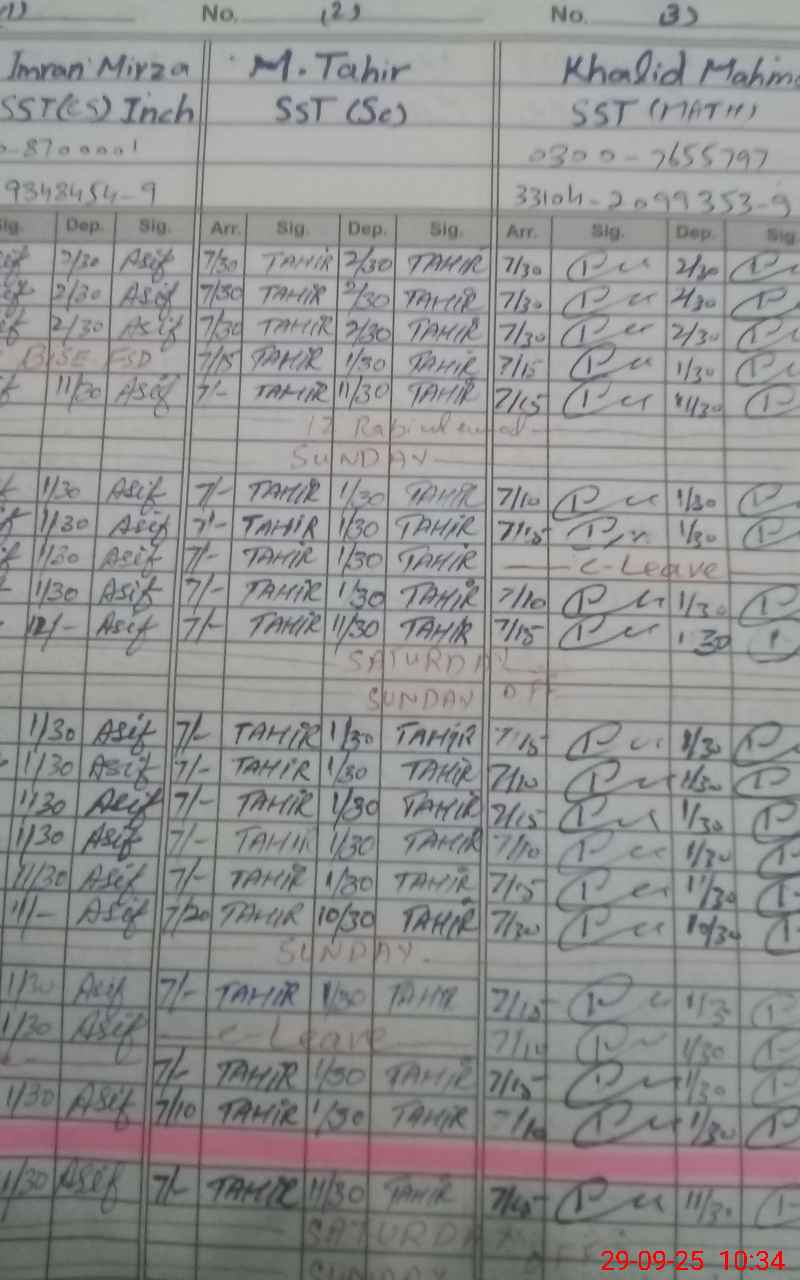 (1) No. (2) No. (3)
Imran Mirza M. Tahir Khalid
SST(CS) Inch SST (Sc) SST (MATH)
-8700001 0300-7655797
9348454-9 33104-2099353-9
Sig. Dep. Sig. Arr. Sig. Dep. Sig. Arr. Sig. Dep. Sig
2/30 Asif 7/30 TAHIR 2/30 TAHIR 7/30 2/30
2/30 Asif 7/30 TAHIR 2/30 TAHIR 7/30 2/30
2/30 Asif 7/30 TAHIR 2/30 TAHIR 7/30 2/30
BISE FSD 7/15 TAHIR 1/30 TAHIR 7/15 1/30
11/30 Asif 7/- TAHIR 11/30 TAHIR 7/15 11/30
12
SUNDAY
1/30 Asif 7/- TAHIR 1/30 TAHIR 7/10 1/30
1/30 Asif 7/- TAHIR 1/30 TAHIR 7/15 1/30
1/30 Asif 7/- TAHIR 1/30 TAHIR C-Leave
1/30 Asif 7/- TAHIR 1/30 TAHIR 7/10 1/30
12/- Asif 7/- TAHIR 11/30 TAHIR 7/15
SATURDAY
SUNDAY OFF
1/30 Asif 7/- TAHIR 1/30 TAHIR 7/15 1/30
1/30 Asif 7/- TAHIR 1/30 TAHIR 7/10 1/30
1/30 Asif 7/- TAHIR 1/30 TAHIR 7/15 1/30
1/30 Asif 7/- TAHIR 1/30 TAHIR 7/10 1/30
11/30 Asif 7/- TAHIR 1/30 TAHIR 7/15 11/30
11/- Asif 7/20 TAHIR 10/30 TAHIR 7/30 10/30
SUNDAY.
1/30 Asif 7/- TAHIR 1/30 TAHIR 7/15
1/30 Asif C-Leave 7/10 1/30
7/- TAHIR 1/30 TAHIR 7/15 1/30
1/30 Asif 7/10 TAHIR 1/30 TAHIR 7/10 1/30
1/30 Asif 7/- TAHIR 11/30 TAHIR 7/15 11/30
SATURDAY
SUNDAY
29-09-25 10:34